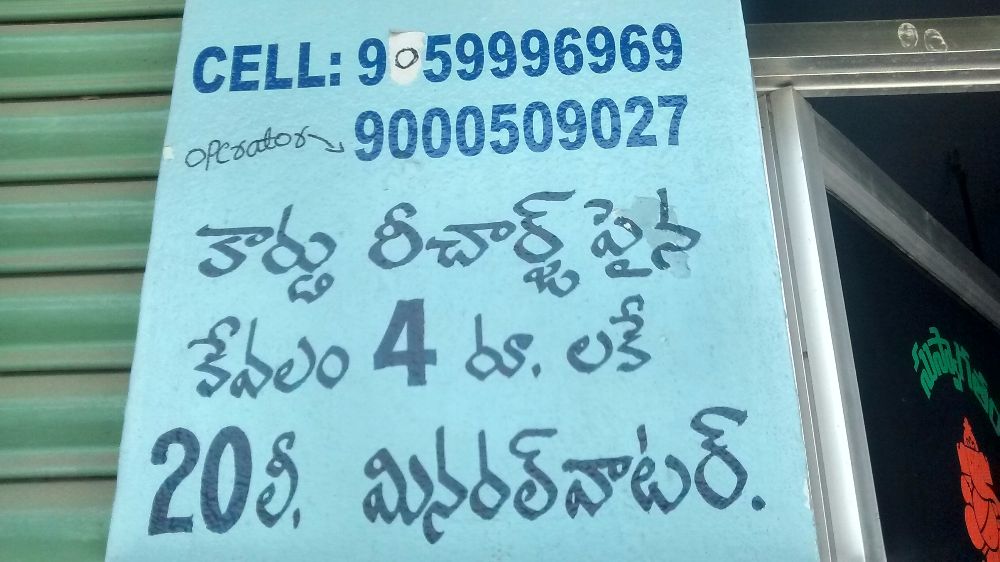 CELL: 9059996969
operator → 9000509027
కార్డు రీచార్జ్ పైన
కేవలం 4 రూ. లకే
20లీ. మినరల్వాటర్.